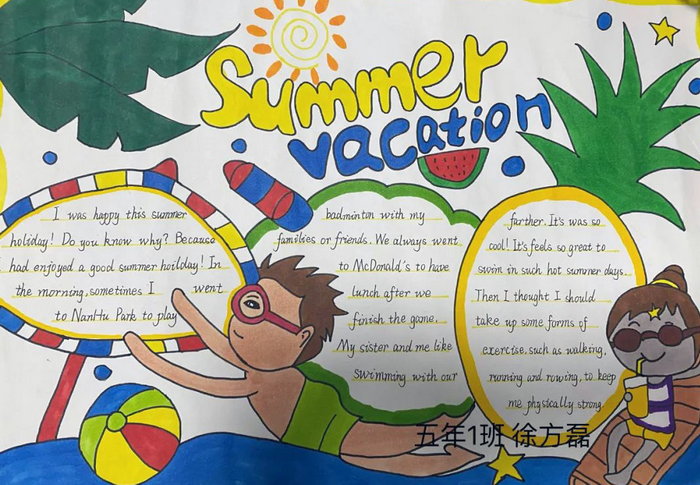 Summer
vacation
I was happy this summer
holiday! Do you know why? Because
I had enjoyed a good summer hoilday! In
the morning, sometimes I went
to NanHu Park to play
badminton with my
families or friends. We always went
to McDonald's to have
lunch after we
finish the game.
My sister and me like
swimming with our
farther. It's was so
cool! It's feels so great to
swim in such hot summer days.
Then I thought I should
take up some forms of
exercise, such as walking,
running and rowing, to keep
me physically strong.
五年1班 徐方磊